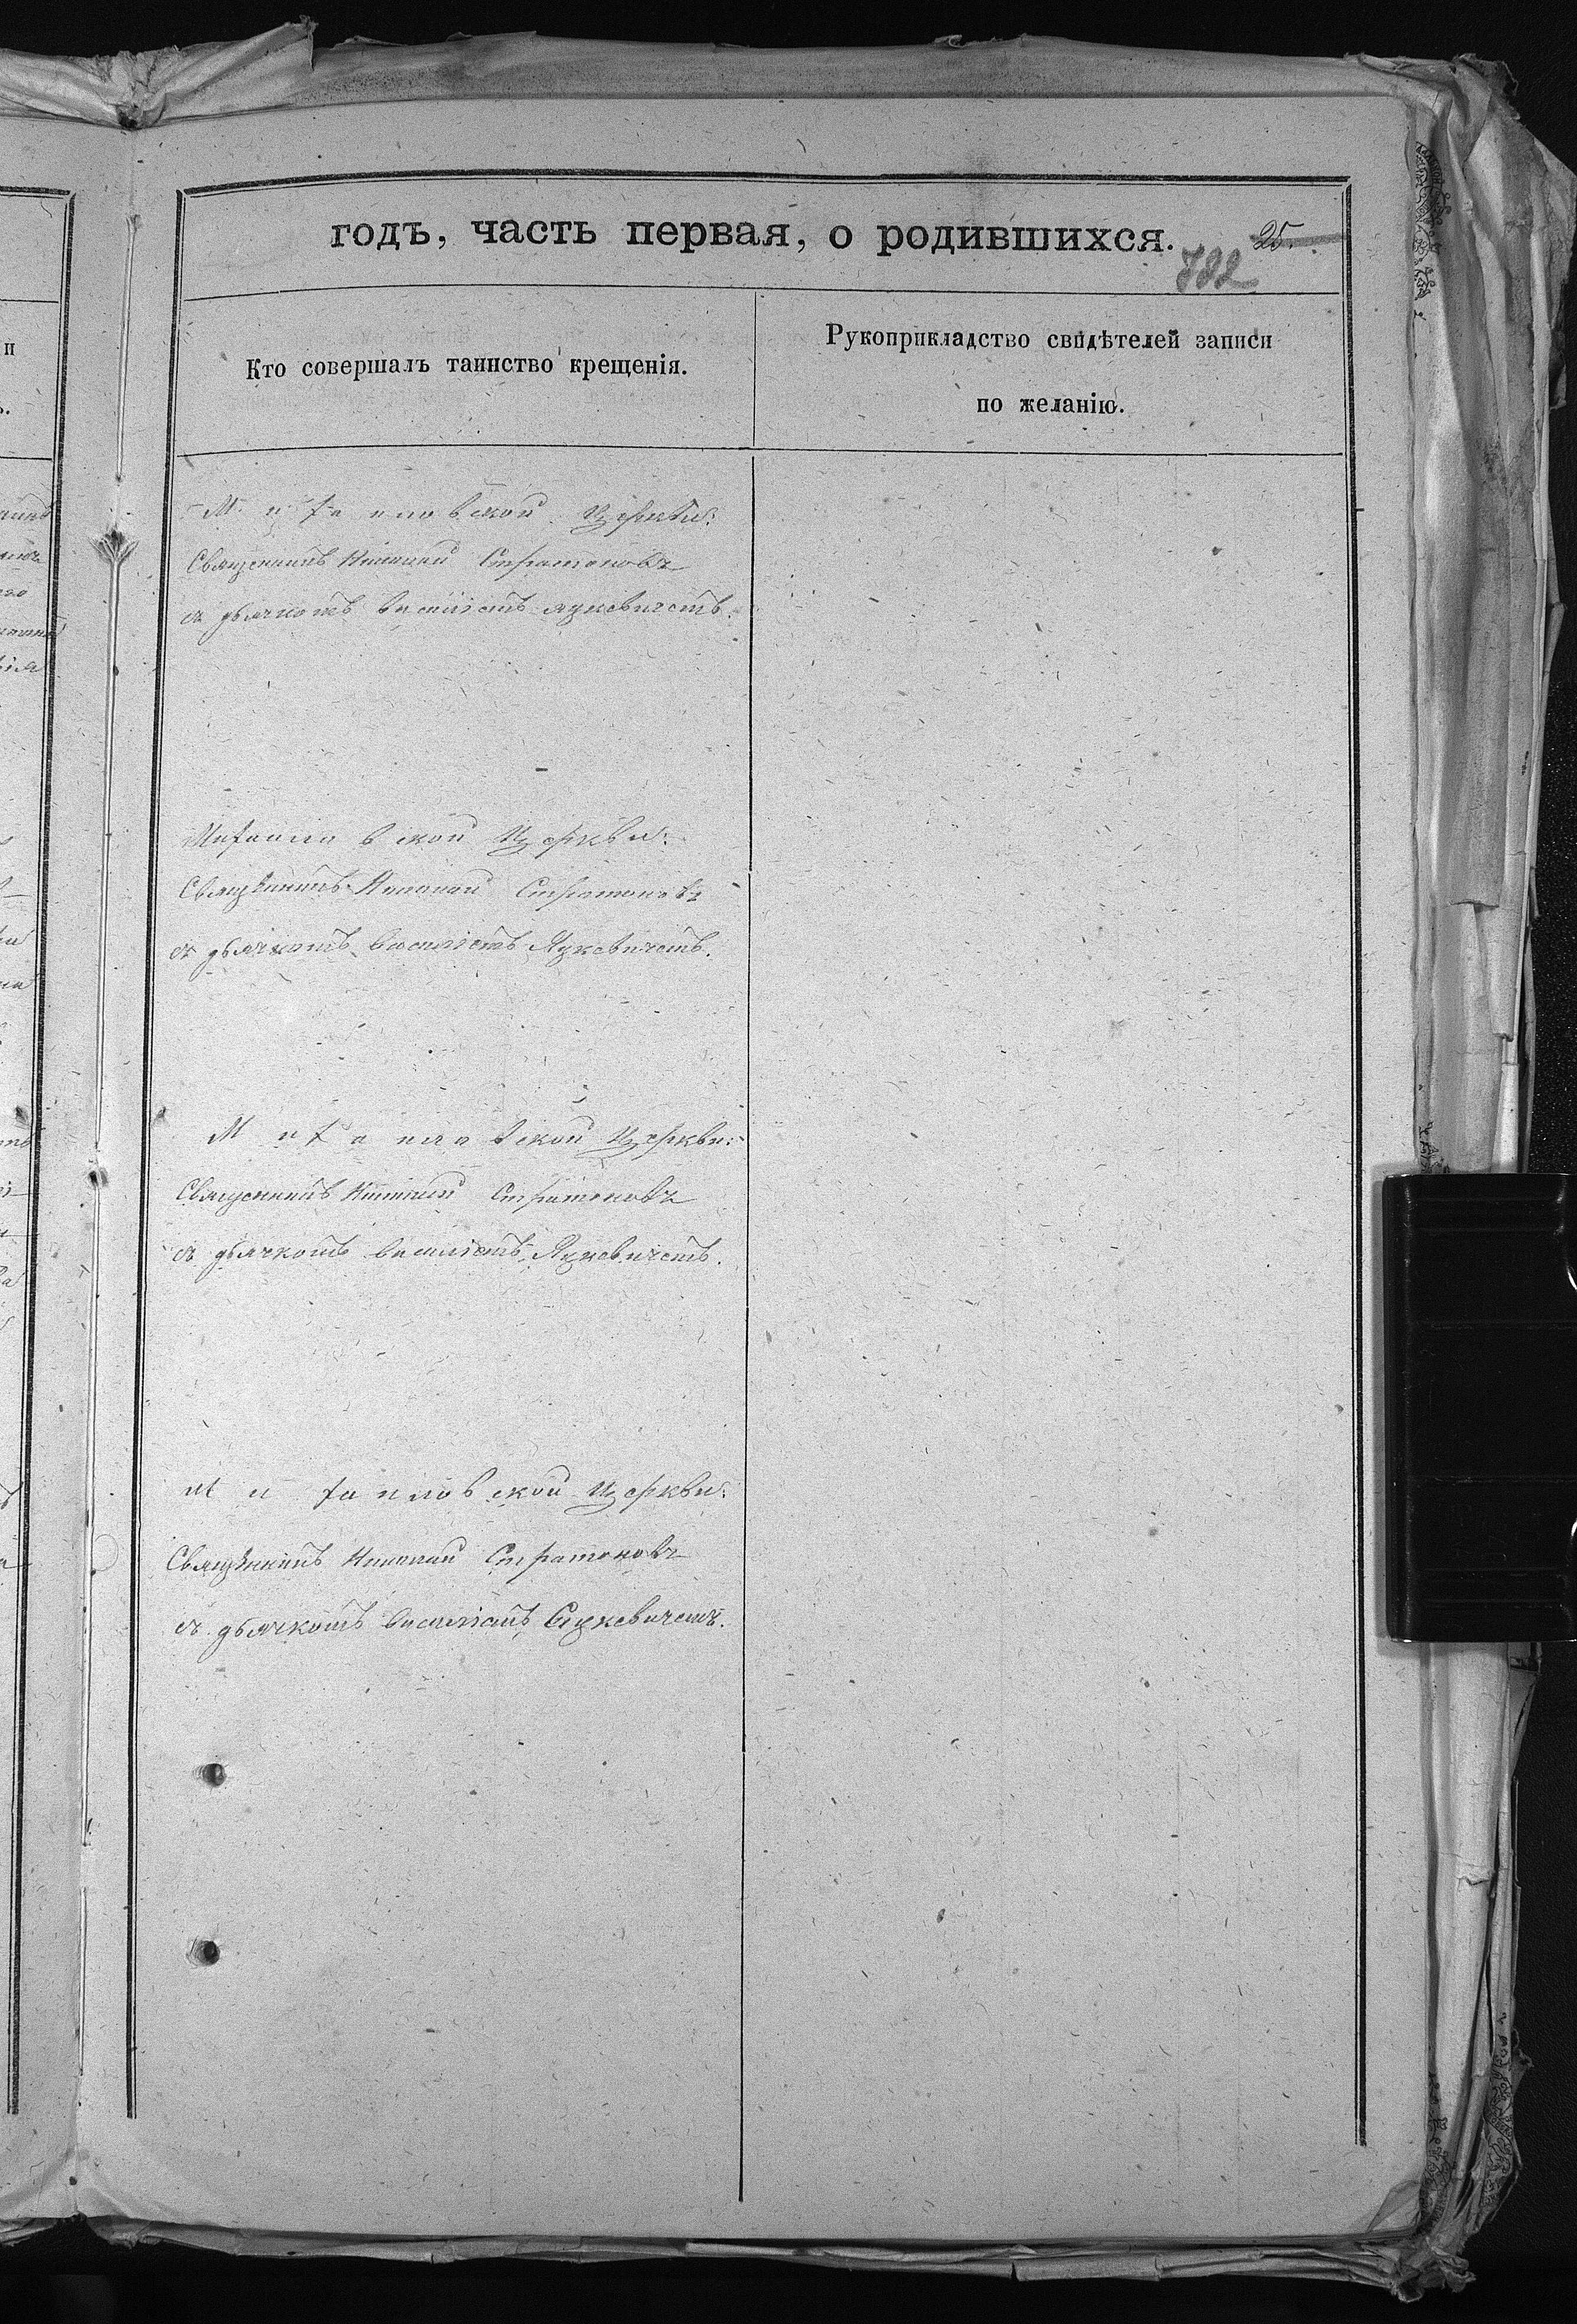 годъ, часть первая, о родившихся.
25.
782
Кто совершалъ таинство крещенія.
Рукоприкладство свидѣтелей записи
по желанію.
Михаиловской Церкви:
Священникъ Николай Стратоновъ
съ дьячкомъ Василіемъ Яцкевичемъ.
Михаиловской Церкви:
Священникъ Николай Стратоновъ
съ дьячкомъ Василіемъ Яцкевичемъ.
Михаиловской Церкви:
Священникъ Николай Стратоновъ
съ дьячкомъ Василіемъ Яцкевичемъ.
Михаиловской Церкви:
Священникъ Николай Стратоновъ
съ дьячкомъ Василіемъ Яцкевичемъ.